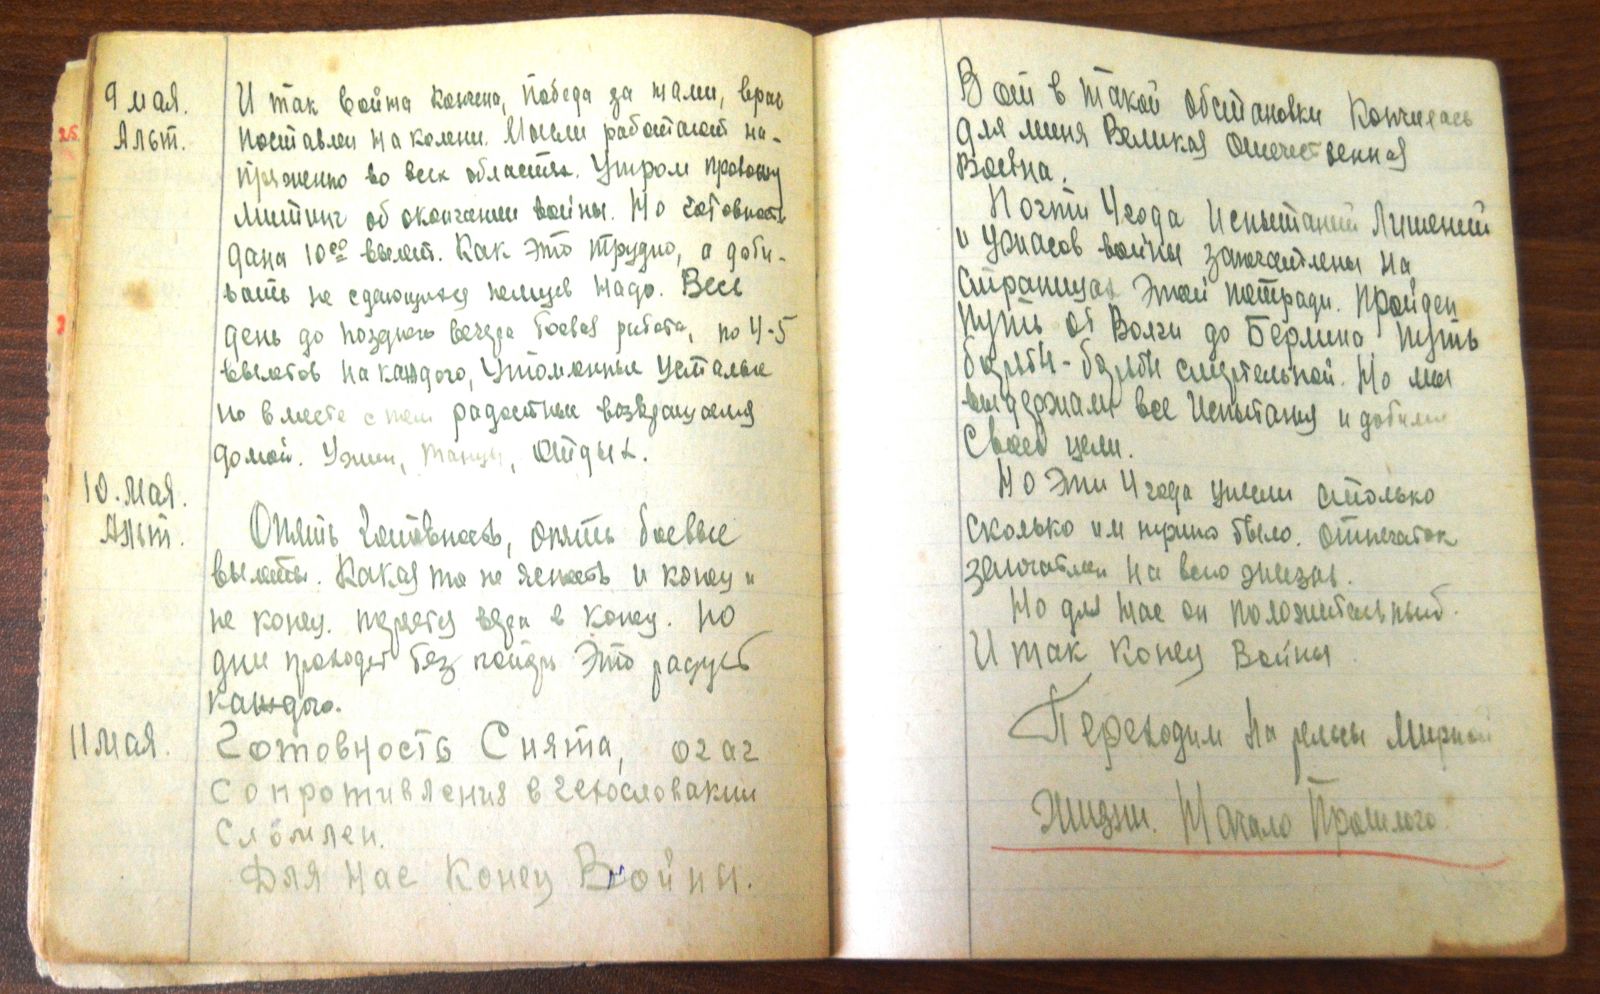 9 мая.
Альт.
И так война кончена, победа за нами, враг
поставлен на колени. Мысли работают на-
пряженно во всех областях. Утром провожу
митинг об окончании войны. Но готовность
дана 10⁰⁰ вылет. Как это трудно, а доби-
вать не сдающихся немцев надо. Весь
день до позднего вечера боевая работа, по 4-5
вылетов на каждого, Утомленные усталые
но вместе с тем радостные возвращаемся
домой. Ужин, танцы, отдых.
10. мая.
Альт.
Опять готовность, опять боевые
вылеты. Какая то не ясность и конец и
не конец. теряется вера в конец. но
дни проходят без Это радует
каждого.
11 мая.
Готовность Снята, очаг
сопротивления в Чехословакии
Сломлен.
Для нас Конец Войны.
Вот в такой обстановки Кончилась
для меня Великая Отечественная
Воена.
Почти 4 года Испытаний Лишений
и ужасов войны запечатлены на
Страницах этой тетради. Пройден
путь от Волги до Берлина путь
борьбы - борьбы смертельной. Но мы
выдержали все Испытания и добились
Своей цели.
Но Эти 4 года унесли столько
сколько им нужно было. Отпечаток
запечатлен на всю жизнь.
Но для нас он положительный.
И так конец Войны
Переходим на рельсы мирной
Жизни. Начало Прошлого.